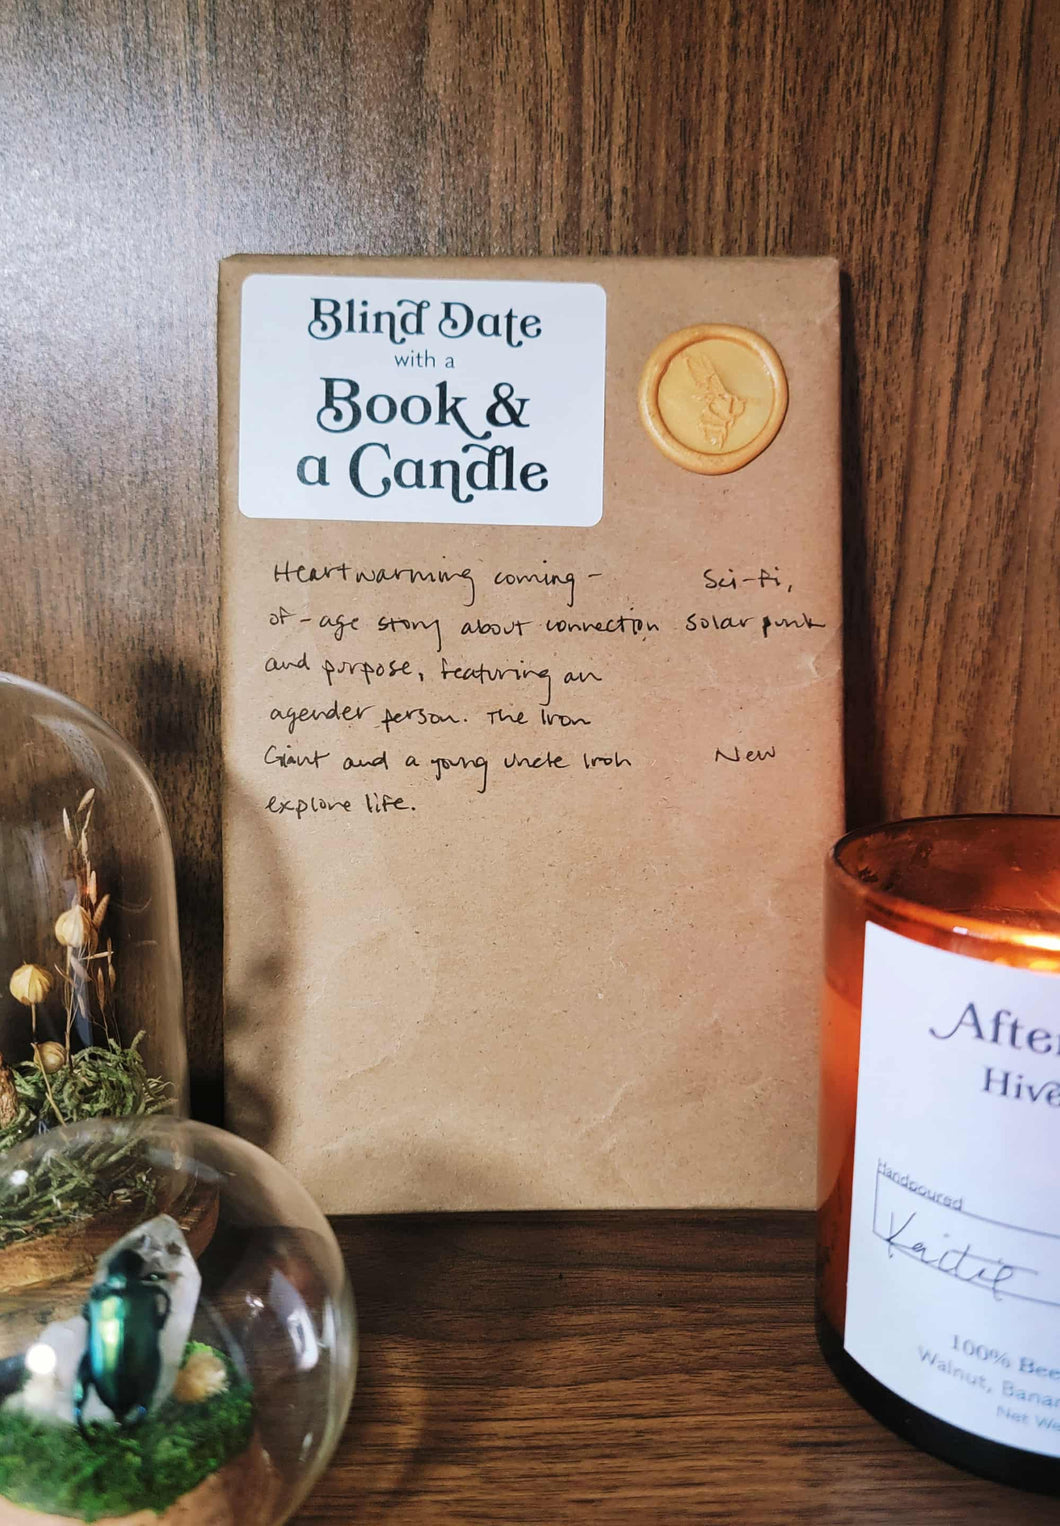 Blind Date
with a
Book &
a Candle
Heartwarming coming-
of-age story about connection
and purpose, featuring an
agender person. The Iron
Giant and a young Uncle Iroh
explore life.
Sci-fi,
solarpunk
New
After
Hive
Handpoured
Kaitie
100% Bee
Walnut, Banan
Net We